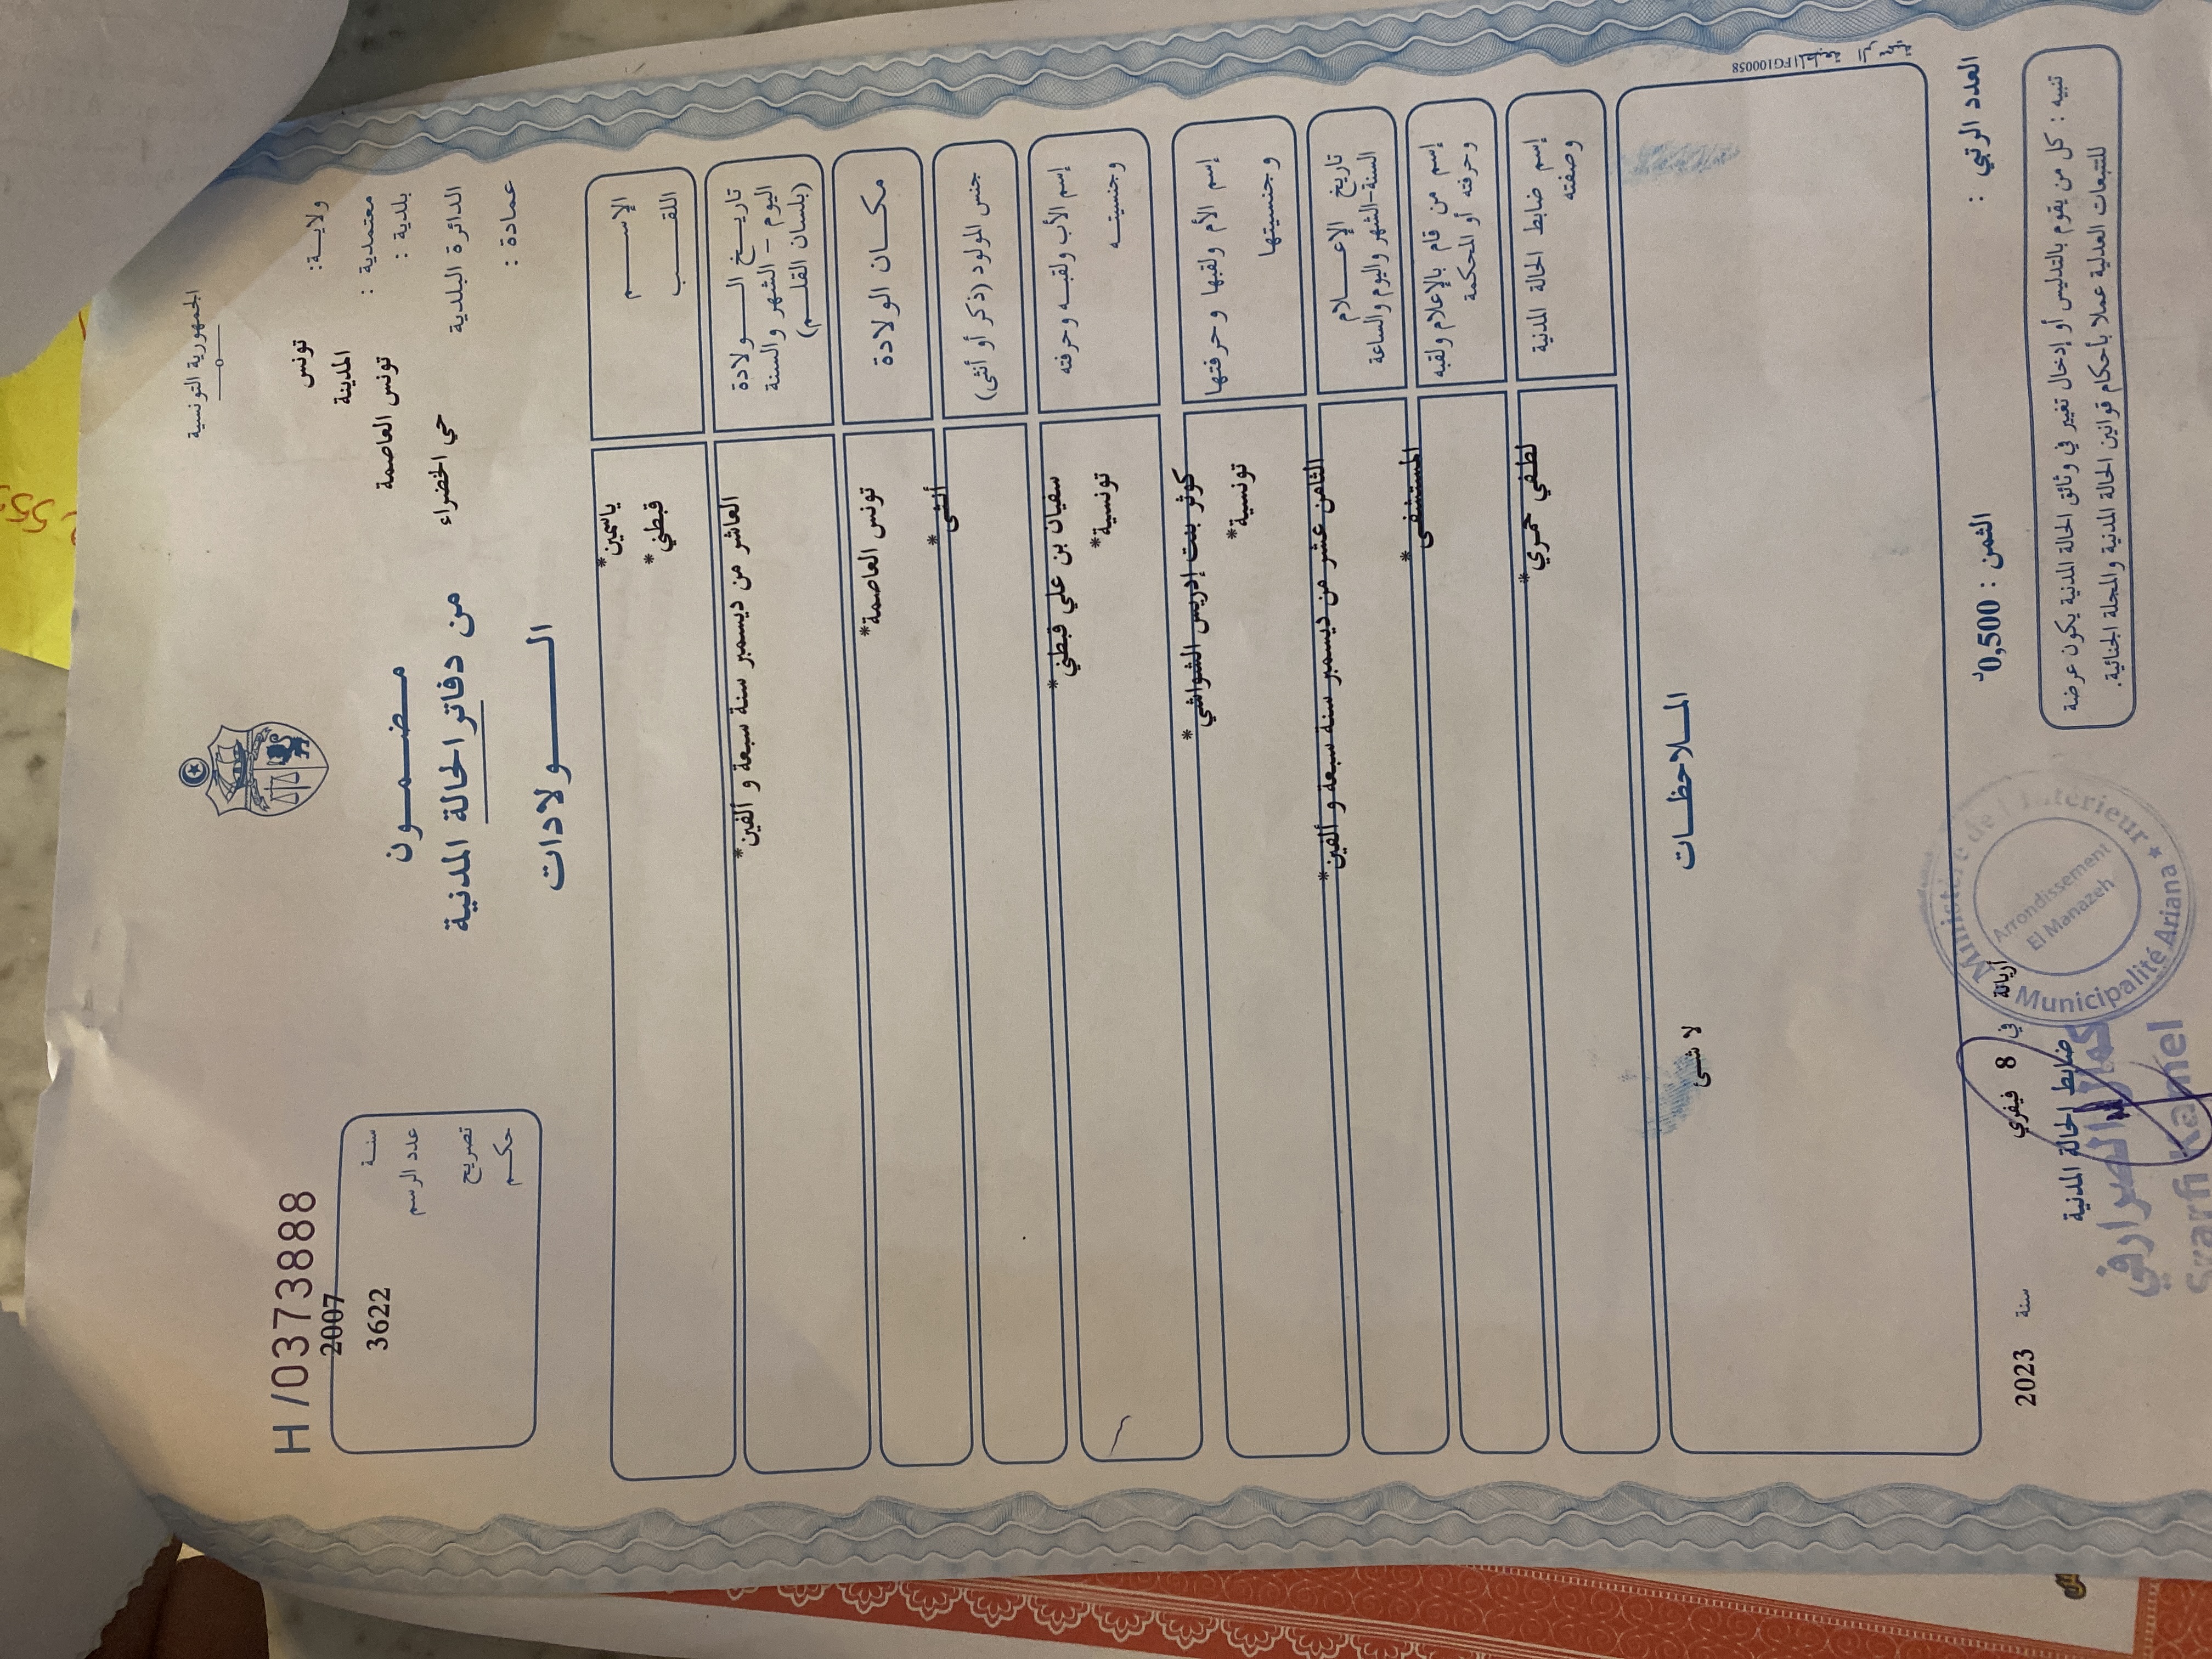 الجمهورية التونسية
ولايـة: تونس
معتمدية : المدينة
بلدية : تونس العاصمة
الدائرة البلدية حي الخضراء
عمادة :
H/0373888
سنـة 2007
عدد الرسم 3622
تصريح
حكـم
مـضـمـون
من دفاتر الحالة المدنية
الـولادات
الإسـم ياسمين*
اللقـب قبطني*
تاريـخ الـولادة
اليوم - الشهر والسنة
(بلسان القلـم)
العاشر من ديسمبر سنة سبعة و ألفين*
مكـان الولادة تونس العاصمة*
جنس المولود (ذكر أو أنثى) أنثى*
إسم الأب ولقبـه وحرفته سفيان بن علي قبطني*
وجنسيتـه تونسية*
إسم الأم ولقبها وحرفتها كوثر بنت إدريس الشواشي*
وجنسيتها تونسية*
تاريخ الإعـلام
السنة-الشهر واليوم والساعة
الثامن عشر من ديسمبر سنة سبعة و ألفين*
إسم من قام بالإعلام ولقبه
وحرفته أو المحكمة
المستشفى*
إسم ضابط الحالة المدنية
وصفته
لطفي حمري*
المـلاحظـات
لا شئ
FG100058
العدد الرتبي :
الثمن : 0,500د
أريانة في 8 فيفري سنة 2023
ضابط الحالة المدنية
تنبيه : كل من يقوم بالتدليس أو إدخال تغيير في وثائق الحالة المدنية يكون عرضة
للتتبعات العدلية عملا بأحكام قوانين الحالة المدنية والمجلة الجنائية.
Ministère de l'Intérieur
Municipalité Ariana
Arrondissement
El Manazeh
كمال الصرارفي
Srarfi Kamel